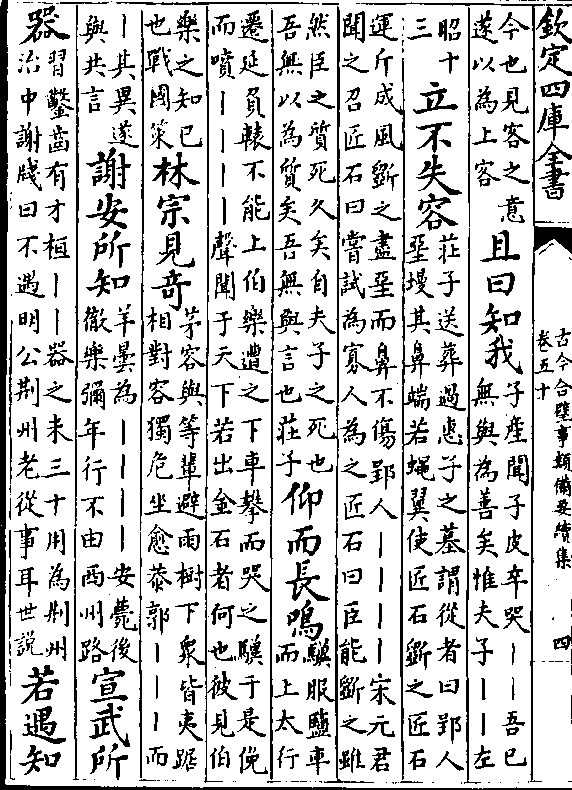 欽定四庫全書
古今合璧事類備要續集
卷五十
四
今也見客之意
遂以為上客
且曰知我
子産聞子皮卒哭丨丨吾已
無與為善矣惟夫子丨丨左
昭十
三
立不失容
莊子送葬過惠子之墓謂從者曰郢人
堊墁其鼻端若蠅翼使匠石斵之匠石
運斤成風斵之盡堊而鼻不傷郢人丨丨丨丨宋元君
聞之召匠石曰嘗試為寡人為之匠石曰臣能斵之雖
然臣之質死久矣自夫子之死也
吾無以為質矣吾無與言也莊子
仰而長鳴
驥服鹽車
而上太行
遷延負轅不能上伯樂遭之下車攀而哭之驥于是俛
而噴丨丨丨丨聲聞于天下若出金石者何也彼見伯
樂之知已
也戰國策
林宗見奇
茅容與等軰避雨樹下衆皆夷踞
相對容獨危坐愈恭郭丨丨丨而
丨其異遂
與共言
謝安所知
羊曇為丨丨丨丨安薨後
徹樂彌年行不由西州路
宣武所
器
習鑿齒有才桓丨丨器之未三十用為荆州
治中謝牋曰不遇明公荆州老從事耳世説
若遇知